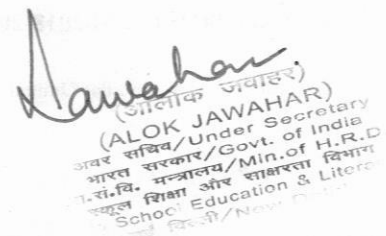 Jawahar.
(आलोक जवाहर)
(ALOK JAWAHAR)
अवर सचिव/Under Secretary
भारत सरकार/Govt. of India
.सं.वि. मन्त्रालय/Min.of H.R.D
स्कूल शिक्षा और साक्षरता विभाग
School Education & Litera
दिल्ली/New